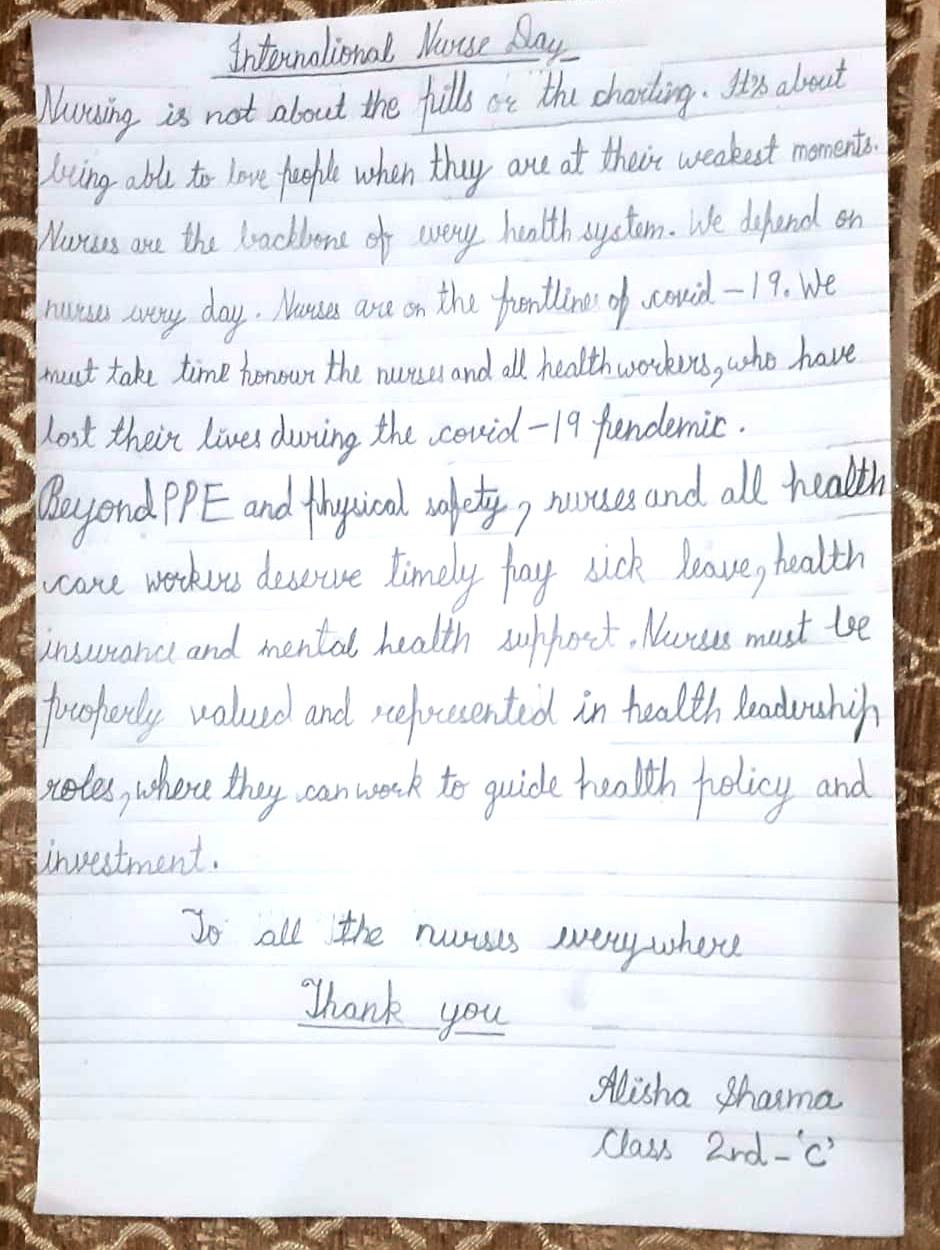 International Nurse Day
Nursing is not about the pills or the charting. It's about
being able to love people when they are at their weakest moments.
Nurses are the backbone of every health system. We depend on
nurses every day. Nurses are on the frontlines of covid-19. We
must take time honour the nurses and all health workers, who have
lost their lives during the covid-19 pendemic.
Beyond PPE and physical safety, nurses and all health
care workers deserve timely pay sick leave, health
insurance and mental health support. Nurses must be
properly valued and represented in health leadership
roles, where they can work to guide health policy and
investment.
To all the nurses everywhere
Thank you
Alisha Sharma
Class 2nd-'C'